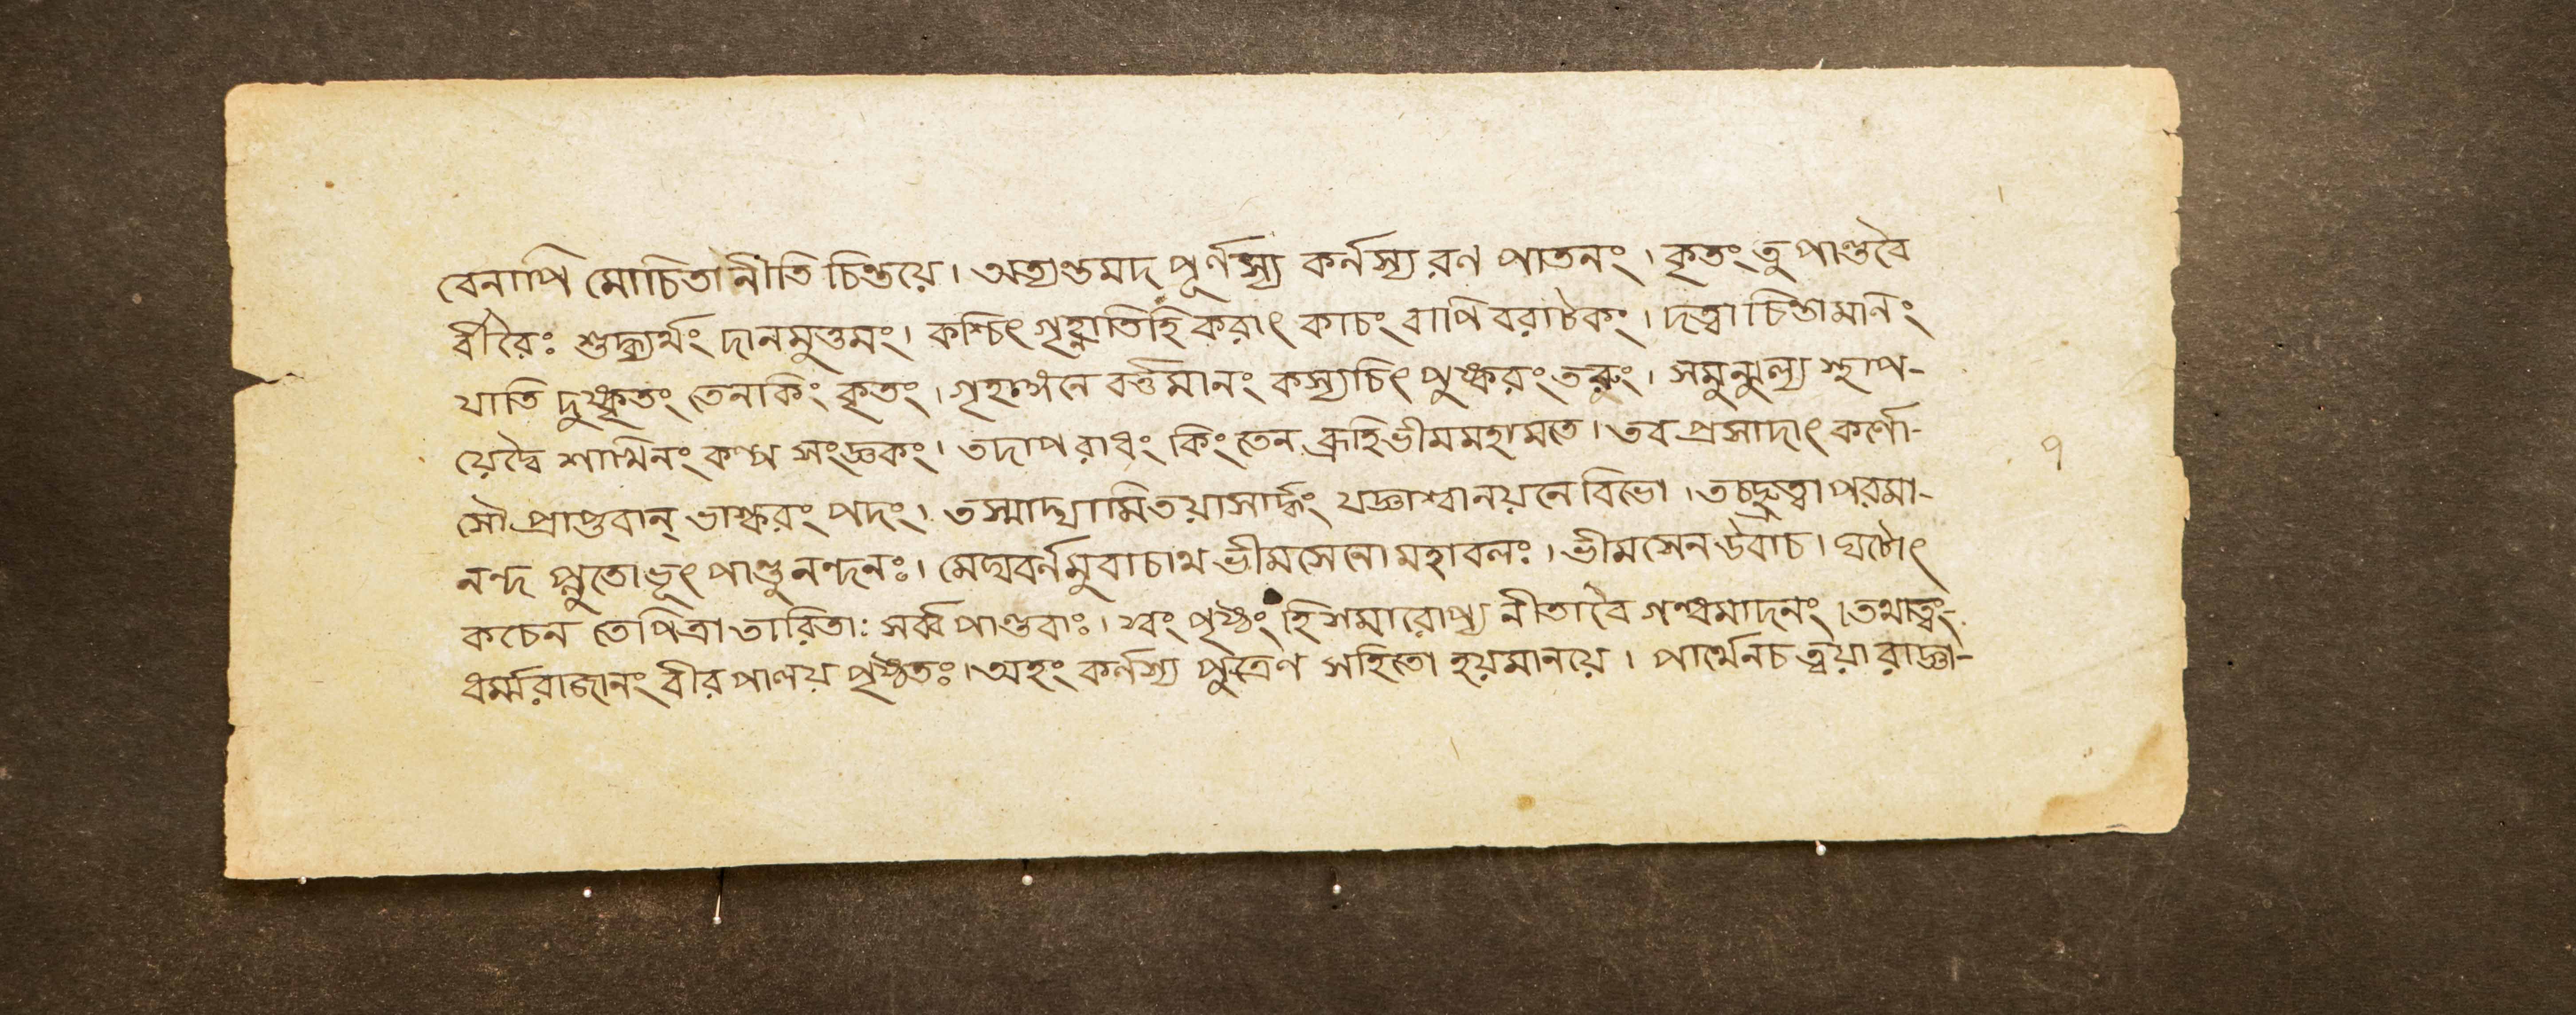 বেনাপি মোচিতা নীতি চিন্তয়ে। অত্যন্তমদ পূর্ণস্য কর্নস্য রণ পাতনং। কৃতং তু পাণ্ডবৈ
র্বীরৈঃ শুদ্ধ্যর্থং দানমুত্তমং। কশ্চিৎ গৃহ্ণাতিহি করাৎ কাচং বাপি বরাটকং। দত্বা চিন্তামনিং
যাতি দুষ্কৃতং তেনকিং কৃতং। গৃহাঙ্গনে বর্ত্তমানং কস্যচিৎ পুষ্করং তরুং। সমুন্মুল্য স্থাপ-
য়েদ্বৈ শাখিনং কল্প সংজ্ঞকং। তদাপরাধং কিং তেন ব্রূহিভীমমহামতে। তব প্রসাদাৎ কর্ণো-
সৌ প্রাপ্তবান্ ভাস্করং পদং। তস্মাদ্যামি তয়াসার্দ্ধং যজ্ঞাশ্বানয়নে বিভো। তচ্ছ্রুত্বা পরমা-
নন্দ প্লুতোভূৎ পাণ্ডুনন্দনঃ। মেঘবর্নমুবাচাথ ভীমসেনো মহাবলঃ। ভীমসেন উবাচ। ঘটোৎ
কচেন তেপিত্রা তারিতাঃ সর্ব্ব পাণ্ডবাঃ। স্বং পৃষ্ঠং হি সমারোপ্য নীতাবৈ গন্ধমাদনং। তথাত্বং
ধর্ম্মরাজানং বীর পালয় পৃষ্ঠতঃ। অহং কর্নস্য পুত্রেণ সহিতো হয়মানয়ে। পার্থেনচ ত্বয়া রাজ্ঞা-
৭